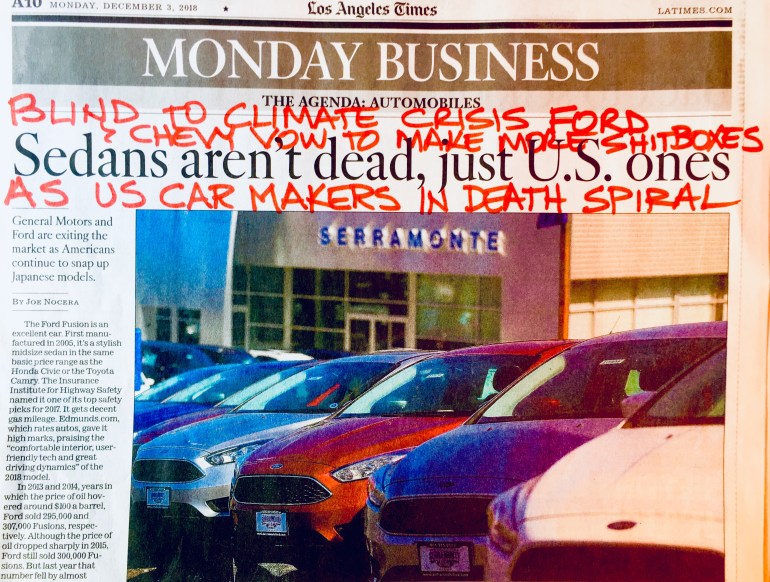 A10 MONDAY, DECEMBER 3, 2018 ★ Los Angeles Times LATIMES.COM
MONDAY BUSINESS
THE AGENDA: AUTOMOBILES
BLIND TO CLIMATE CRISIS FORD
& CHEVY VOW TO MAKE MORE SHITBOXES
Sedans aren't dead, just U.S. ones
AS US CAR MAKERS IN DEATH SPIRAL
General Motors and
Ford are exiting the
market as Americans
continue to snap up
Japanese models.
BY JOE NOCERA
The Ford Fusion is an
excellent car. First manu-
factured in 2005, it's a stylish
midsize sedan in the same
basic price range as the
Honda Civic or the Toyota
Camry. The Insurance
Institute for Highway Safety
named it one of its top safety
picks for 2017. It gets decent
gas mileage. Edmunds.com,
which rates autos, gave it
high marks, praising the
"comfortable interior, user-
friendly tech and great
driving dynamics" of the
2018 model.
In 2013 and 2014, years in
which the price of oil hov-
ered around $100 a barrel,
Ford sold 295,000 and
307,000 Fusions, respec-
tively. Although the price of
oil dropped sharply in 2015,
Ford still sold 300,000 Fu-
sions. But last year that
number fell by almost
SERRAMONTE